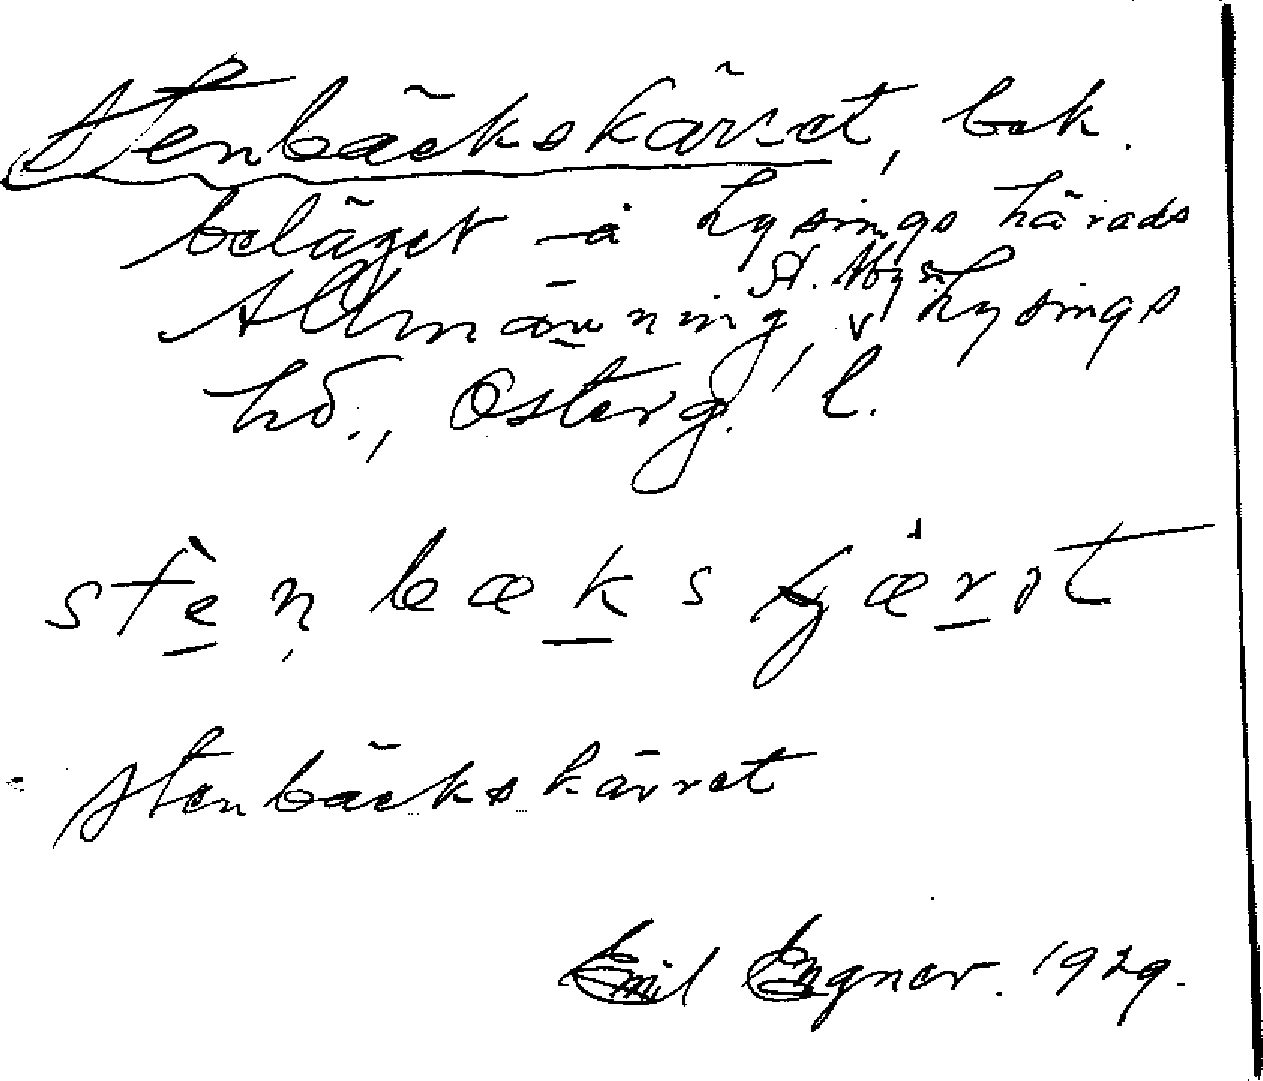 Stenbäckskärret, bek.
beläget å Lysings härads
St. Åby sn
Allmänning, Lysings
hd., Österg. l.
stèn bæks kjærət
Stenbäckskärret
Emil Eygner. 1929.